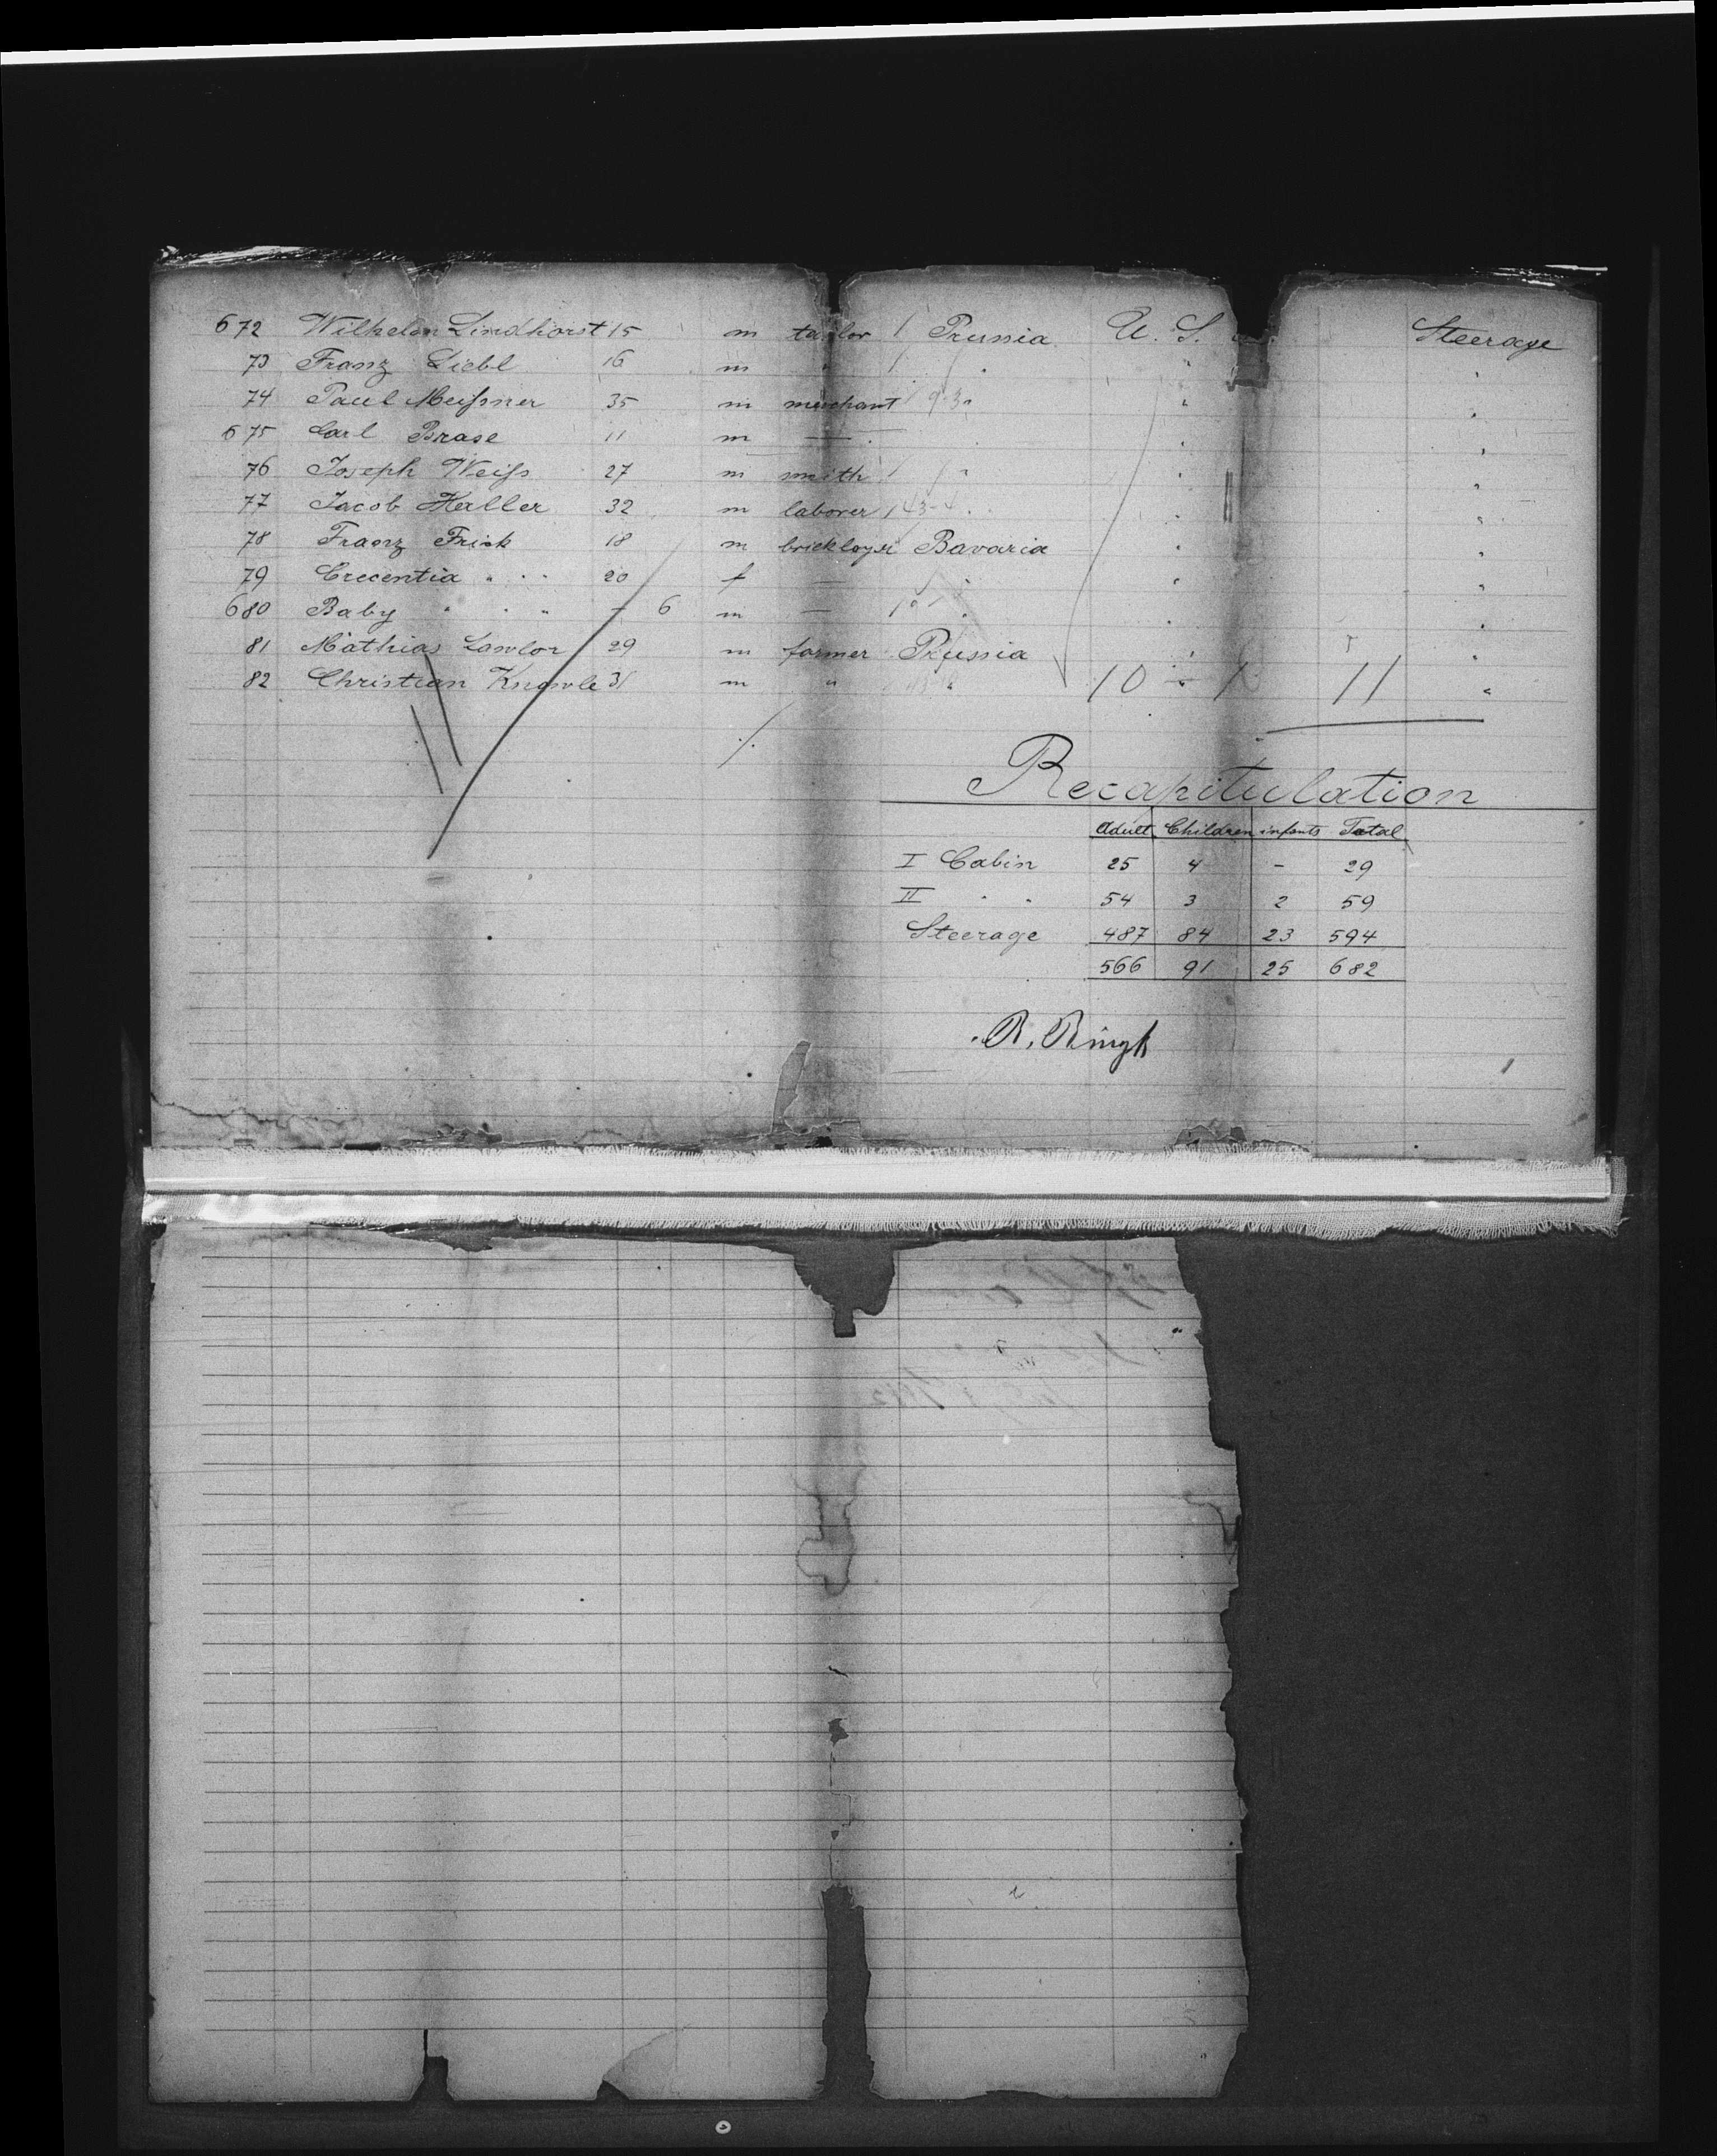 672 Wilhelm Lindhorst 15 m taylor Prussia U. S. Steerage
73 Franz Liebl 16 m " " " "
74 Paul Meißner 35 m merchant " "
675 Carl Brase 11 m — " " "
76 Joseph Weiß 27 m smith " " "
77 Jacob Haller 32 m laborer " " "
78 Franz Frick 18 m bricklayer Bavaria " "
79 Crecentia " 20 f — " " "
680 Baby " — 6 m — " " "
81 Mathias Lawlor 29 m farmer Prussia " "
82 Christian Knowle 31 m " " 10 1 11 "
Recapitulation
Adult Children infants Total
I Cabin 25 4 - 29
II " " 54 3 2 59
Steerage 487 84 23 594
566 91 25 682
R. Ringk